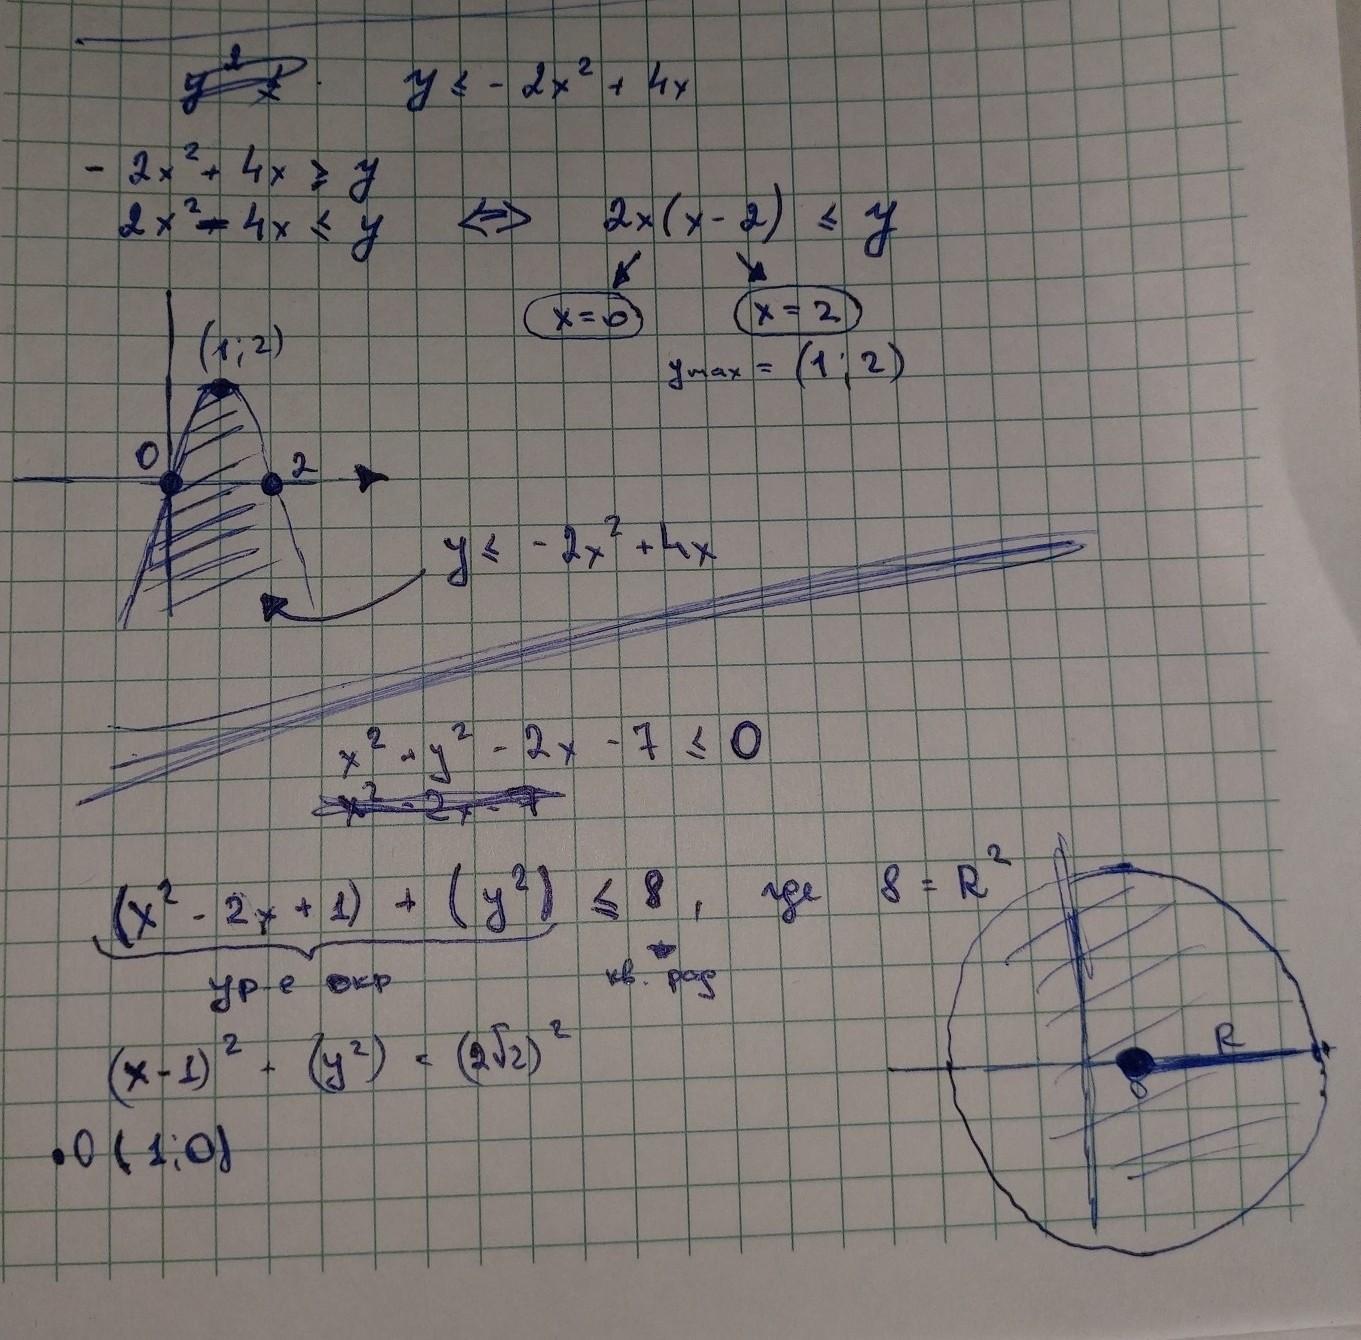 y ≤ - 2x² + 4x
- 2x² + 4x ≥ y
2x² - 4x ≤ y ⇔ 2x(x - 2) ≤ y
x = 0 x = 2
(1; 2)
y max = (1; 2)
0 2
y ≤ - 2x² + 4x
x² + y² - 2x - 7 ≤ 0
x² - 2x - 7
(x² - 2x + 1) + (y²) ≤ 8, где 8 = R²
ур-е окр кв. рад
(x - 1)² + (y²) = (2√2)²
R
0
•O (1; 0)